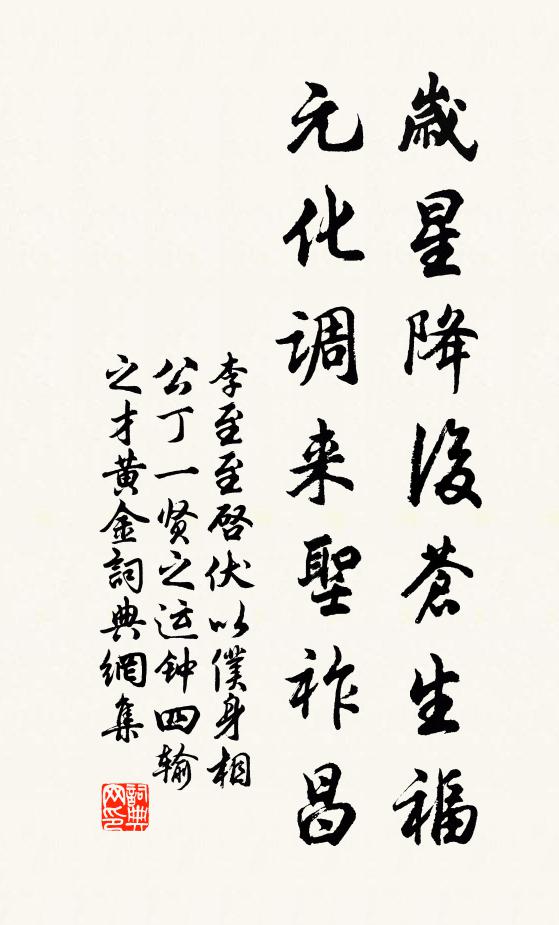 歲星降後蒼生福
元化調来聖祚昌
李至至啓伏以僕身相
公丁一贤之运钟四输
之才黄金詞典網集
詞典网印